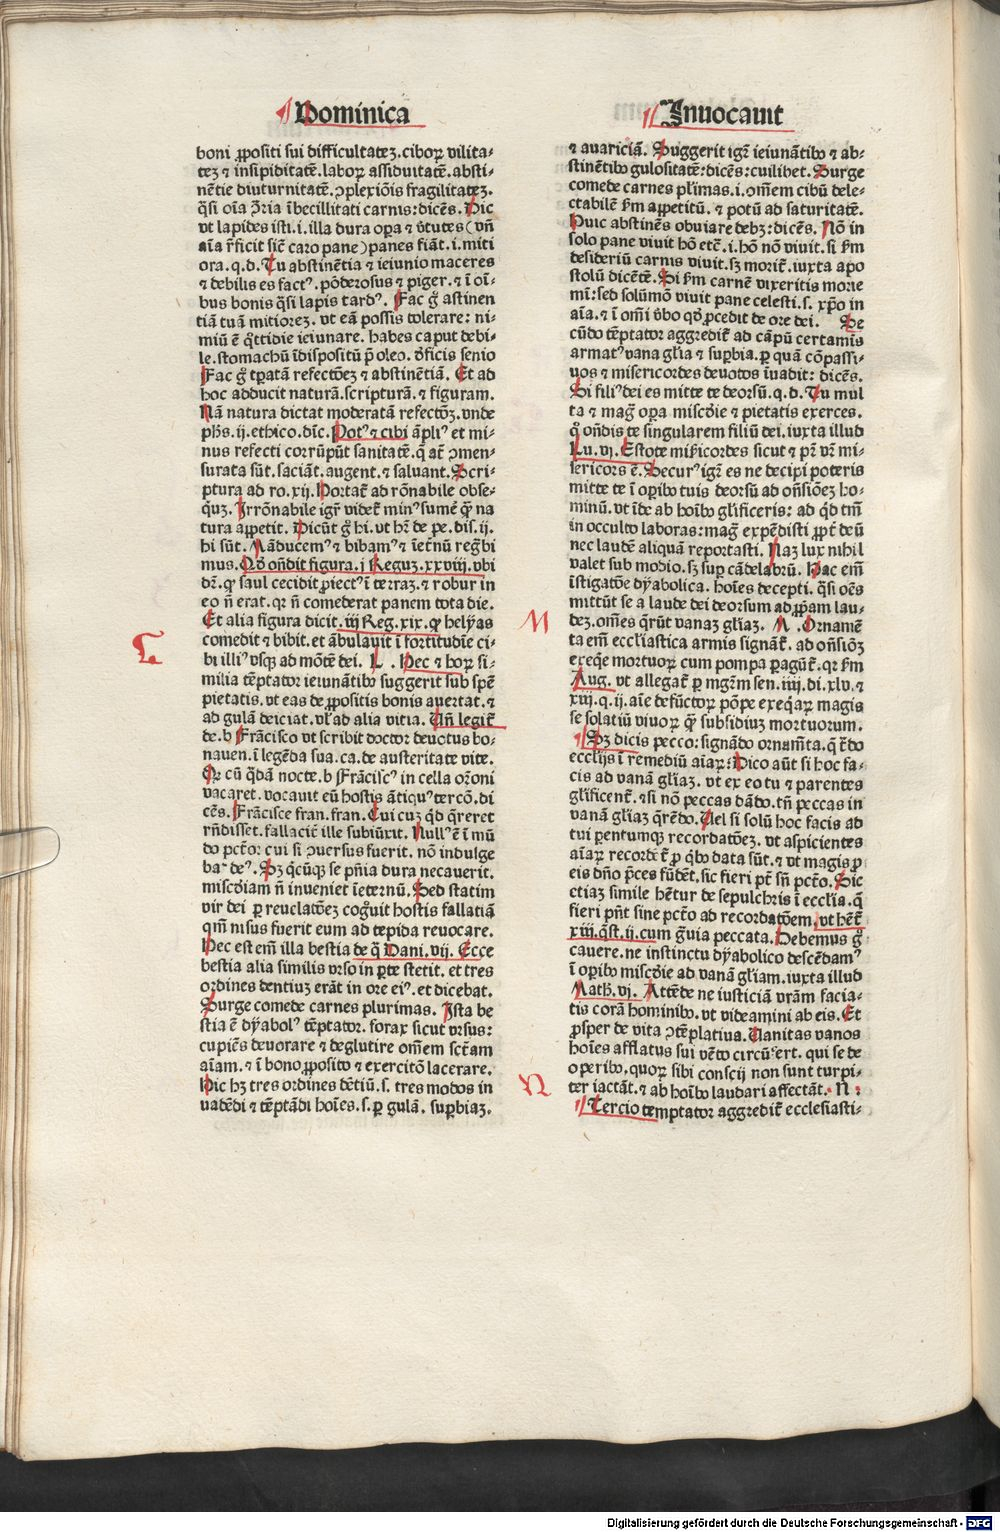 Dominica
Inuocauit
boni ꝓpositi sui difficultateʒ. ciboꝝ vilita⸗
teʒ ⁊ insipiditatē. laboꝝ assiduitatē. absti⸗
nētie diuturnitatē. ꝯplexiōis fragilitateʒ.
q̄si oīa ꝯ̄ria ībecillitati carnis: dicēs. Dic
vt lapides isti. i. illa dura oꝑa ⁊ v̄tutes (vn̄
aīa r̄ficit sic̄ caro pane) panes fiāt. i. miti
ora. q. d. Tu abstinētia ⁊ ieiunio maceres
⁊ debilis es factꝰ. pōderosus ⁊ piger. ⁊ ī oī⸗
bus bonis q̄si lapis tardꝰ. Fac g̊ astinen
tiā tuā mitioreʒ. vt eā possis tolerare: ni⸗
miū ē q̊ttidie ieiunare. habes caput debi⸗
le. stomachū īdispositū p̄ oleo. v̄ficis senio
Fac g̊ tꝑatā refectōeʒ ⁊ abstinētiā. Et ad
hoc adducit naturā. scripturā. ⁊ figuram.
Nā natura dictat moderatā refectōʒ. vnde
ph̄s. ij. ethico. dīc. Potꝰ ⁊ cibi āpliꝰ et mi⸗
nus refecti corrūpūt sanitatē. q̄ at̄ ꝯmen⸗
surata sūt. saciāt. augent. ⁊ saluant. Scri⸗
ptura ad ro. xij. Hortat̄ ad rōnabile obse⸗
quʒ. Irrōnabile igr̄ videt̄ minꝰ sumē q̄ na
tura appetit. Dicūt g̊ hi. vt hr̄ de pe. dis. ij.
hi sūt. Māducemꝰ ⁊ bibamꝰ ⁊ īet̄nū regn̄bi
mus. Qd̓ on̄dit figura. j Reguʒ. xxviij. vbi
dr̄. ꝙ saul cecidit ꝓiectꝰ ī terraʒ. ⁊ robur in
eo n̄ erat. qr n̄ comederat panem tota die.
Et alia figura dicit. iij Reg. xix. ꝙ helyas
comedit ⁊ bibit. et ābulauit ī fortitudīe ci⸗
bi illiꝰ vsqꝫ ad mōtē dei. L . Hec ⁊ hoꝝ si⸗
milia tēptator ieiunātibꝰ suggerit sub spē
pietatis. vt eas de ꝓpositis bonis auertat. ⁊
ad gulā deiciat. vl̓ ad alia vitia. Vn̄ legit̄
de. b Frācisco vt scribit doctor deuotus bo⸗
nauen. ī legēda sua. ca. de austeritate vite.
Qr cū q̄dā nocte. b Frāciscꝰ in cella or̄oni
vacaret. vocauit eū hostis ātiquꝰ ter cō. di
cēs. Frācisce fran. fran. Cui cuʒ q̊d q̄reret
rn̄disset. fallacit̄ ille subiūxit. Nullꝰ ē ī mū
do pctōr. cui si ꝯuersus fuerit. nō indulge
bat deꝰ. Sʒ q̄cūqꝫ se pn̄ia dura necauerit.
misc̓diam n̄ inueniet īeternū. Sed statim
vir dei ꝑ reuelatōeʒ cog̊uit hostis fallatiā
qm̄ nisus fuerit eum ad tepida reuocare.
Hec est em̄ illa bestia de q̄ Dani. vij. Ecce
bestia alia similis vrso in ꝑte stetit. et tres
ordines dentiuʒ erāt in ore eiꝰ. et dicebat.
Surge comede carnes plurimas. Ista be
stia ē dyabolꝰ tēptator. forax sicut vrsus:
cupiēs deuorare ⁊ deglutire om̄em sctam
aīam. ⁊ ī bono ꝓposito ⁊ exercitō lacerare.
Hic hʒ tres ordines dētiū. s. tres modos in
uadēdi ⁊ tēptādi hoīes. s. ꝑ gulā. suꝑbiaʒ.
⁊ auariciā. Suggerit igr̄ ieiunātibꝰ ⁊ ab⸗
stinētibꝰ gulositatē: dicēs: cuilibet. Surge
comede carnes pl̓imas. i. om̄em cibū dele⸗
ctabilē fm̄ appetitū. ⁊ potū ad saturitatē.
Huic abstinēs obuiare debʒ: dicēs. Nō in
solo pane viuit hō etc̄. i. hō nō viuit. si fm̄
desideriū carnis viuit. sʒ morit̄. iuxta apo
stolū dicētē. Si fm̄ carnē vixeritis morie
mī: sed solūmō viuit pane celesti. s. xp̄o in
aīa. ⁊ ī om̄i v̓bo qd̓ ꝓcedit de ore dei. Se
cūdo tēptator aggredit̄ ad cāpū certamīs
armatꝰ vana gl̓ia ⁊ suꝑbia. ꝑ quā cōpassi⸗
uos ⁊ misericordes deuotos īuadit: dicēs.
Si filiꝰ dei es mitte te deorsū. q. d. Tu mul
ta ⁊ mag̊ oꝑa misc̓die ⁊ pietatis exerces.
q̊ on̄dis te singularem filiū dei. iuxta illud
Lu. vj. Estote mīcordes sicut ⁊ pr̄ vr̄ mi⸗
sericors ē. Securꝰ igr̄ es ne decipi poteris
mitte te ī oꝑibꝰ tuis deorsū ad on̄siōeʒ ho⸗
minū. vt īde ab hoībꝰ gl̓ificeris: ad qd̓ tm̄
in occulto laboras: mag̊ expēdisti ꝓpt̄ deū
nec laudē aliquā reportasti. Naʒ lux nihil
valet sub modio. sʒ suꝑ cādelabrū. Hac em̄
īstigatōe dyabolica. hoīes decepti. q̄si oēs
mittūt se a laude dei deorsum ad ꝓpam lau⸗
deʒ. om̄es q̄rūt vanaʒ gl̓iaʒ. M. Ornamē⸗
ta em̄ eccl̓iastica armis signāt̄. ad on̄siōʒ
exeqe mortuoꝝ cum pompa ꝑagūt̄. qr fm̄
Aug. vt allegat̄ ꝑ mgr̄m sen. iiij. di. xlv. ⁊
xiij. q. ij. aīe defūctoꝝ pōpe exeq̄aꝝ magis
se solatiū viuoꝝ q̄ subsidiuʒ mortuorum.
Sʒ dicis pecco: signādo ornam̄ta. q̄ t̄do
eccl̓ijs ī remediū aīaꝝ: Dico aūt si hoc fa⸗
cis ad vanā gl̓iaʒ. vt ex eo tu ⁊ parentes
gl̓ificent̄. ⁊ si nō peccas dādo. tn̄ peccas in
vanā gl̓iaʒ q̄rēdo. Uel si solū hoc facis ad
tui ꝑentumqꝫ recordatōeʒ. vt aspicientes
aīaꝝ recordēt̄ ꝑ q̊bꝰ data sūt. ⁊ vt magis ꝑ
eis dn̄o p̄ces fūdēt. sic fieri pt̄ sn̄ pctō. Sic
etiaʒ simile hētur de sepulchris ī eccl̓ia. q̄
fieri pn̄t sine pctō ad recordatōem. vt hēt̄
xiij. q̄st. ij. cum g̊uia peccata. Debemus g̊
cauere. ne instinctu dyabolico descēdamꝰ
ī oꝑibꝰ misc̓die ad vanā gl̓iam. iuxta illud
Math̄. vj. Attēde ne iusticiā vrām facia⸗
tis corā hominibꝰ. vt videamini ab eis. Et
ꝓsper de vita ꝯtēplatiua. Uanitas vanos
hoīes afflatus sui vēto circūfert. qui se de
operibꝰ. quoꝝ sibi conscij non sunt turpi⸗
ter iactāt. ⁊ ab hoībꝰ laudari affectāt. N
Tercio temptator aggredit̄ ecclesiasti⸗
L
M
N
Digitalisierung gefördert durch die Deutsche Forschungsgemeinschaft - DFG